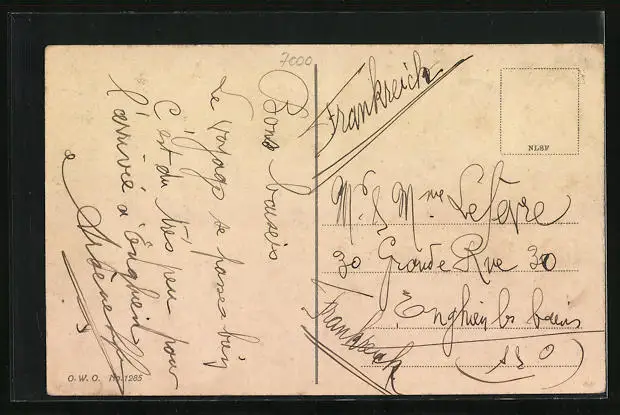 7000
Bons baisers
Le voyage se passe bien
C'est du très peu pour
l'arrivée à Enghien
O. W. O. No. 1265
Frankreich
NLSF
Mr & Mme Lefevre
30 Grande Rue 30
Enghien les bains
(S & O)
Frankreich